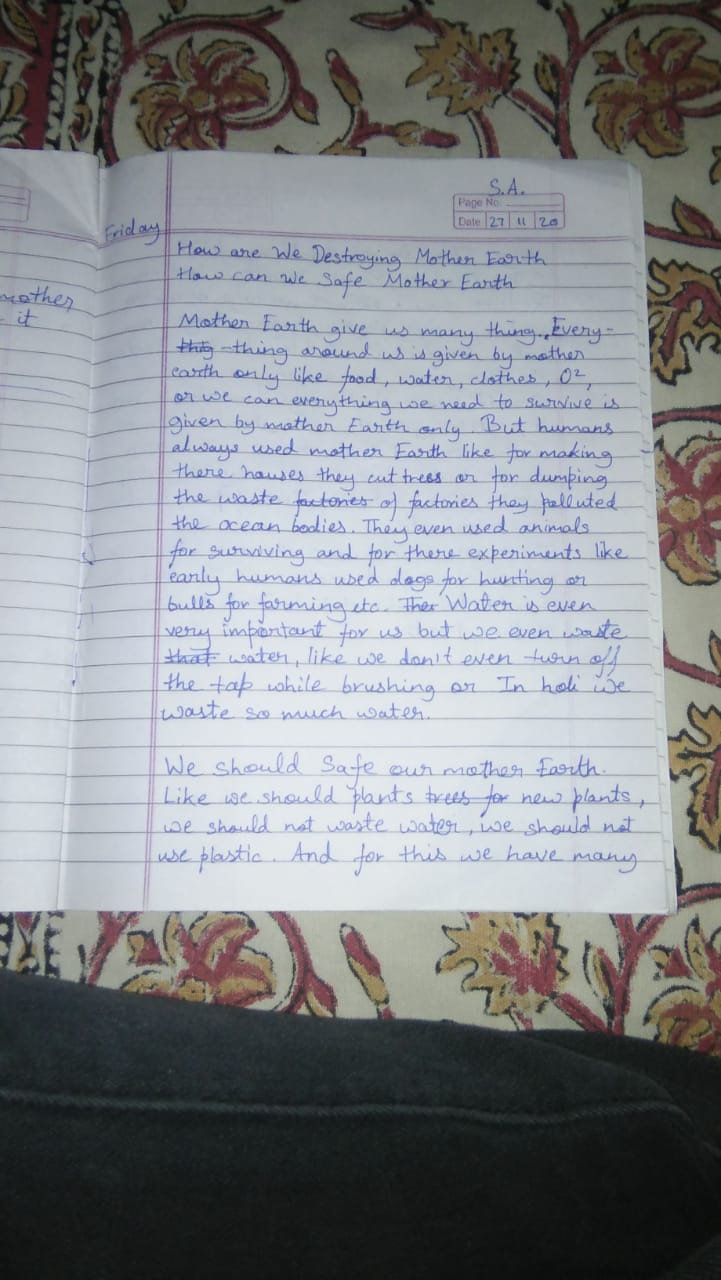 S.A.
Page No.
Date 27 11 20
Friday
mother
it
How are We Destroying Mother Earth
How can We Safe Mother Earth
Mother Earth give us many thing. Every-
thig -thing around us is given by mother
earth only like food, water, clothes, O²,
or we can everything we need to survive is
given by mother Earth only. But humans
always used mother Earth like for making
there houses they cut trees or for dumping
the waste factories of factories they polluted
the ocean bodies. They even used animals
for surviving and for there experiments like
early humans used dogs for hunting or
bulls for farming etc. Ther Water is even
very important for us but we even waste
that water, like we don't even turn off
the tap while brushing or In holi we
waste so much water.
We should Safe our mother Earth.
Like we should plants trees for new plants,
we should not waste water, we should not
use plastic. And for this we have many